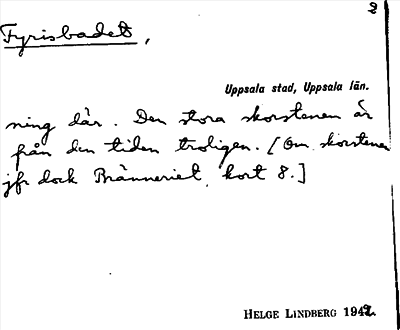 2
Fyrisbadet,
Uppsala stad, Uppsala län.
ning där. Den stora skorstenen är
från den tiden troligen. [Om skorstenen
jfr dock Bränneriet, kort 8.]
HELGE LINDBERG 1942.